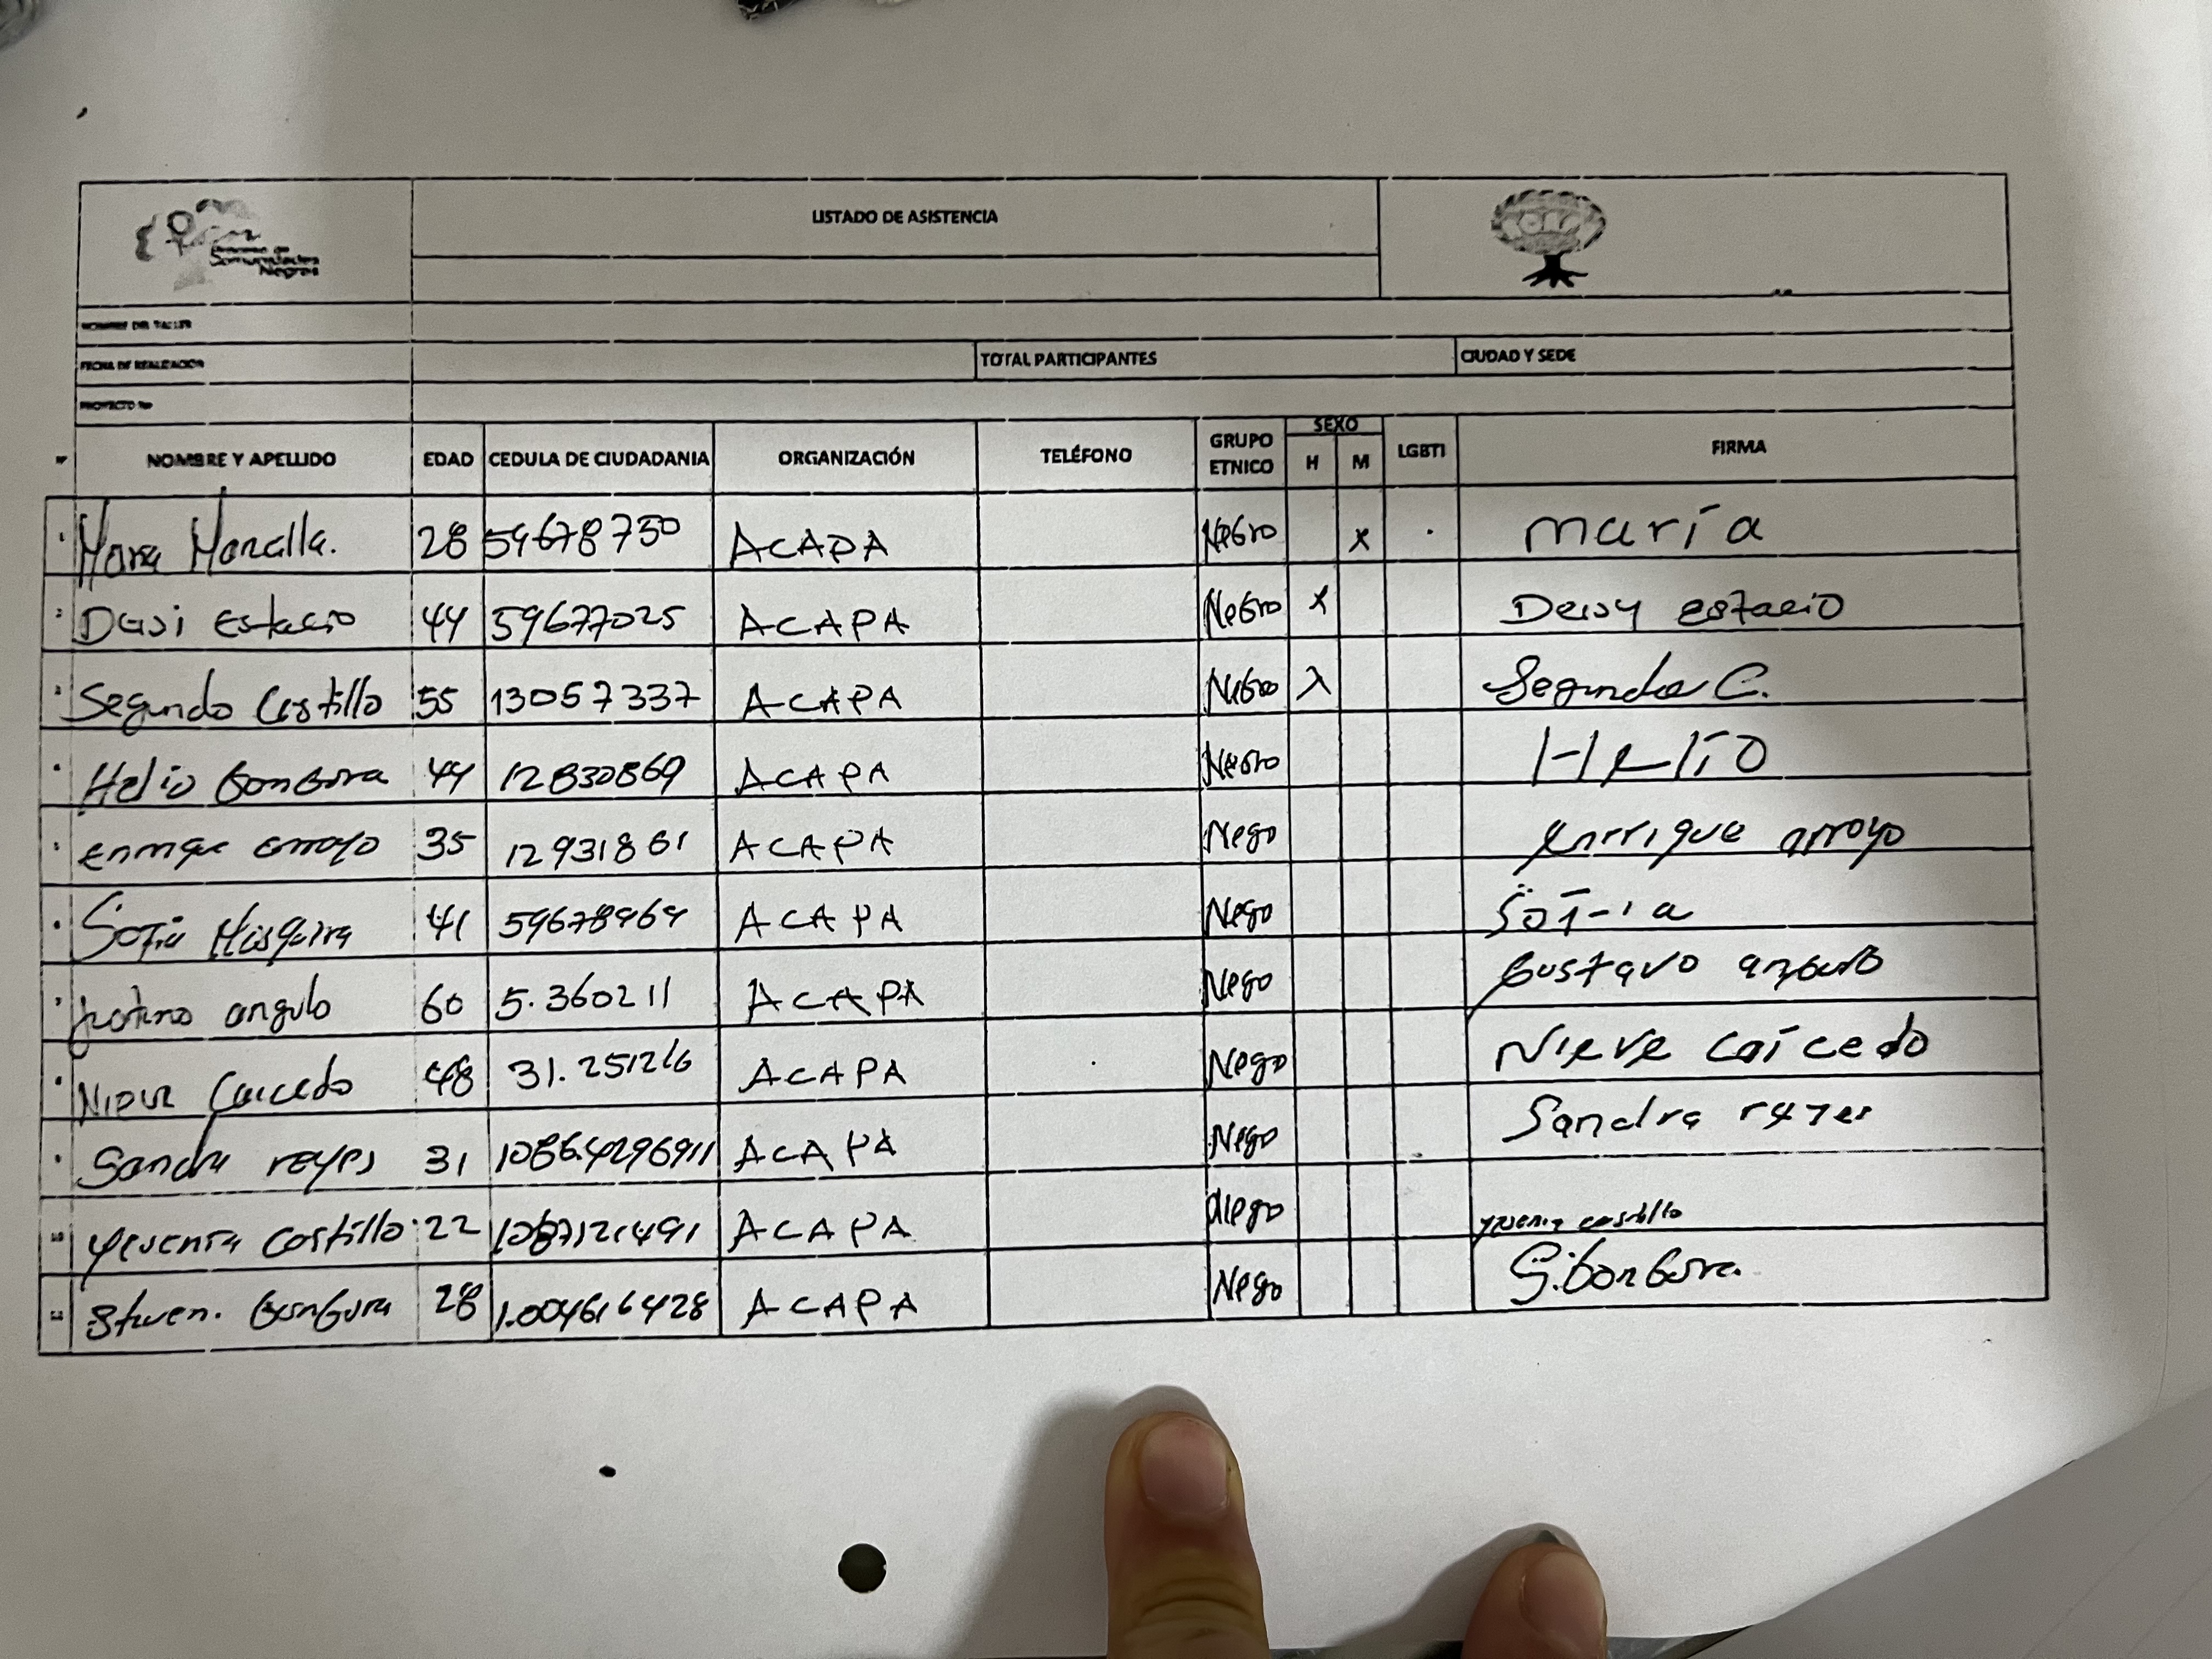 Comunidades
Negras
LISTADO DE ASISTENCIA
NOMBRE DEL TALLER
FECHA DE REALIZACION TOTAL PARTICIPANTES CIUDAD Y SEDE
PROYECTO No
NOMBRE Y APELLIDO EDAD CEDULA DE CIUDADANIA ORGANIZACIÓN TELÉFONO GRUPO ETNICO SEXO H M LGBTI FIRMA
1 28 59678730 ACAPA Negro x maría
2 Estacio 44 59677025 ACAPA Negro x Deisy estacio
3 Segundo Castillo 55 13057337 ACAPA Negro x Segundo C.
4 Helio 44 12830869 ACAPA Negro HELIO
5 enrrique arroyo 35 12931861 ACAPA Nego Enrrique arroyo
6 Sofia 41 ACAPA Nego Sofia
7 angulo 60 5.360211 ACAPA Nego Gustavo angulo
8 Caicedo 48 31.251216 ACAPA Nego Nieve Caicedo
9 Sandra reyes 31 ACAPA Nego Sandra reyes
10 Castillo 22 ACAPA Nego castillo
11 28 1.004616428 ACAPA Nego